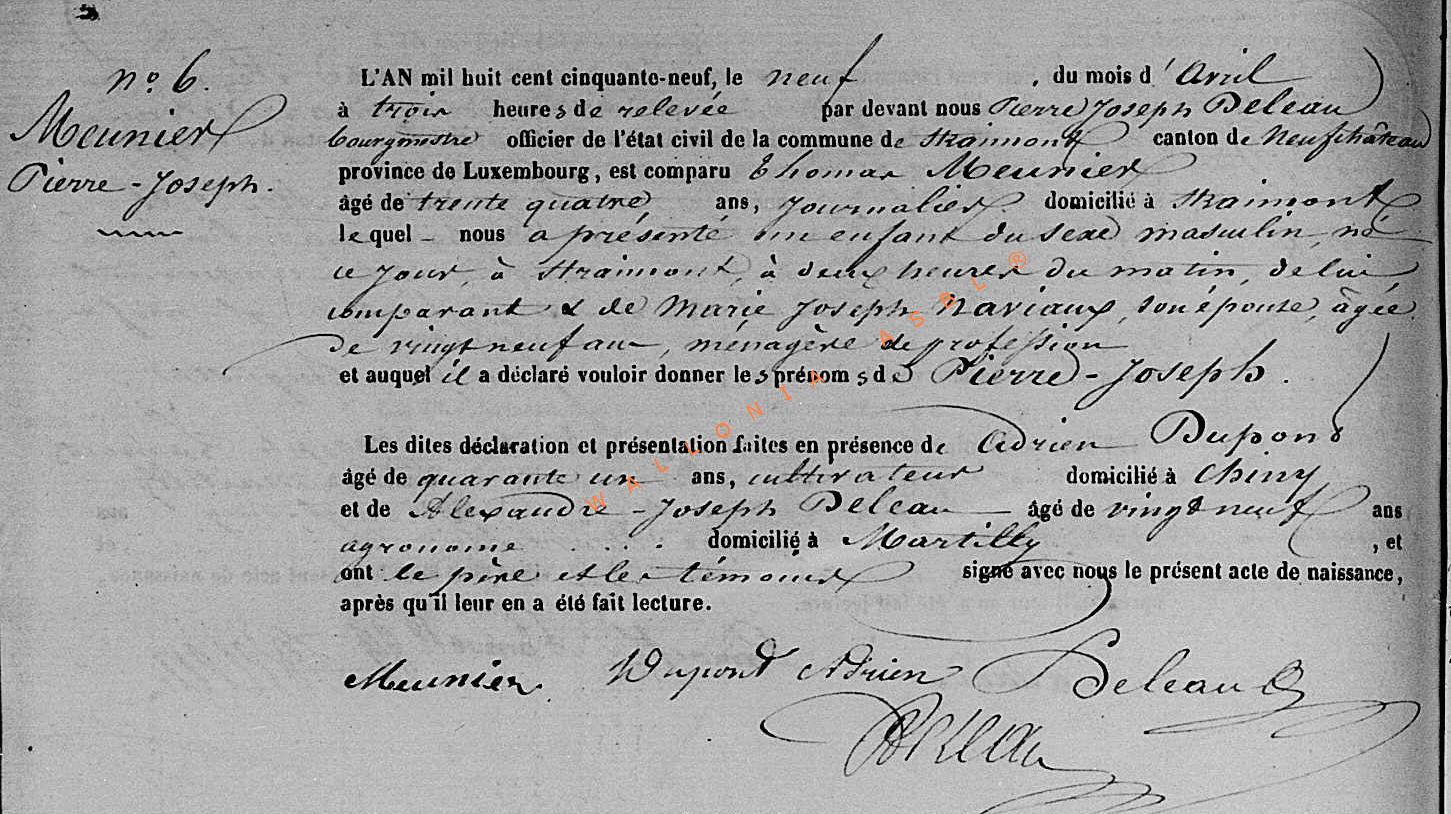 n° 6.
Meunier
Pierre-Joseph.
L'AN mil huit cent cinquante-neuf, le neuf, du mois d'Avril
à trois heures de relevée par devant nous Pierre Joseph Deleau
bourgmestre officier de l'état civil de la commune de Straimont canton de Neufchâteau
province de Luxembourg, est comparu Thomas Meunier
âgé de trente quatre ans, journalier domicilié à Straimont
lequel nous a présenté un enfant du sexe masculin, né
ce jour, à Straimont, à deux heures du matin, de lui
comparant & de Marie Joseph Naviaux, son épouse, âgée
de vingt neuf ans, ménagère de profession
et auquel il a déclaré vouloir donner les prénoms de Pierre-Joseph.
Les dites déclaration et présentation faites en présence de Adrien Dupond
âgé de quarante un ans, cultivateur domicilié à Chiny
et de Alexandre-Joseph Deleau âgé de vingt neuf ans
agronome .... domicilié à Martilly, et
ont le père et les témoins signé avec nous le présent acte de naissance,
après qu'il leur en a été fait lecture.
Meunier. Dupond Adrien Deleau
Deleau
WALLONIA ASBL ®